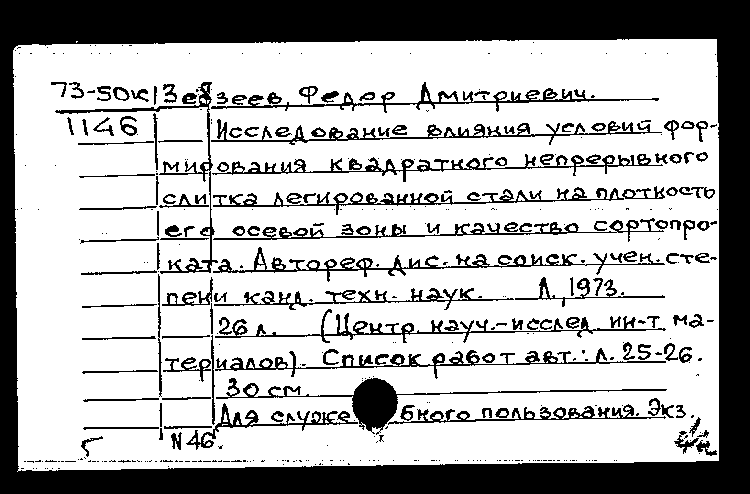 73-50к Зебзеев, Федор Дмитриевич.
1146 Исследование влияния условий фор-
мирования квадратного непрерывного
слитка легированной стали на плотность
его осевой зоны и качество сортопро-
ката. Автореф. дис. на соиск. учен. сте-
пени канд. техн. наук. Л., 1973.
26 л. (Центр. науч.-исслед. ин-т ма-
териалов). Список работ авт.: л. 25-26.
30 см.
Для служебного пользования. Экз.
N 46.